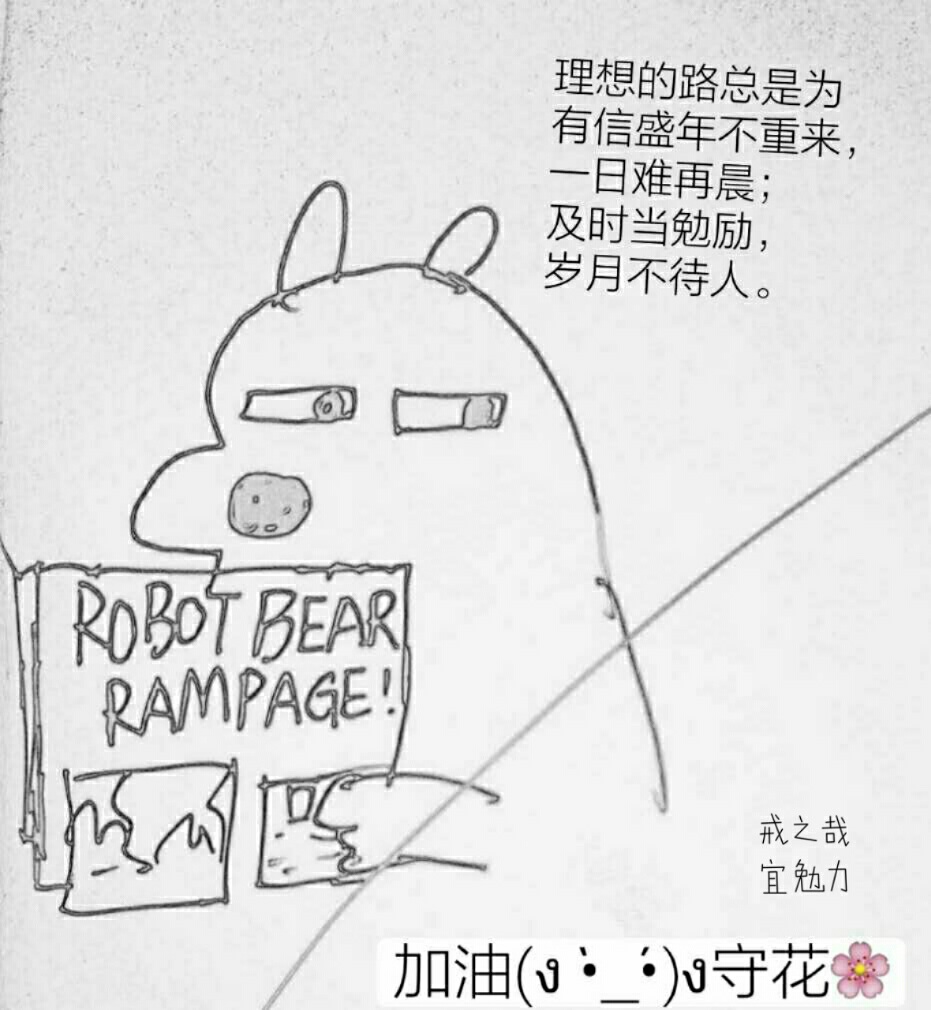 理想的路总是为
有信盛年不重来，
一日难再晨；
及时当勉励，
岁月不待人。
ROBOT BEAR
RAMPAGE!
戒之哉
宜勉力
加油(ง •̀_•́)ง守花🌸